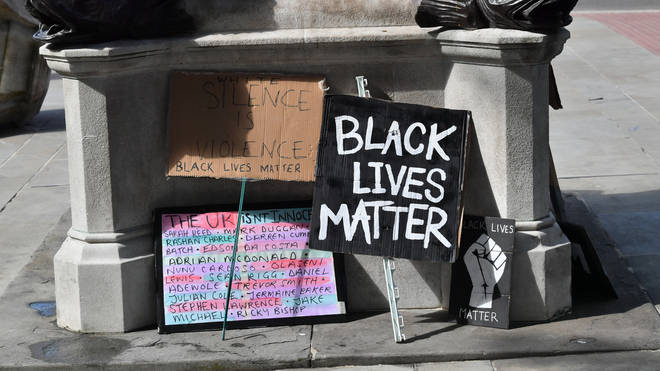 WHITE
SILENCE
IS
VIOLENCE
BLACK LIVES MATTER
BLACK
LIVES
MATTER
THE UK ISNT INNOCE
SARAH REED · MARK DUGGAN
RASHAN CHARLES · DERREN CUM
BATCH · EDSON DA COSTA
ADRIAN MCDONALD · OLASENI
LEWIS · SEAN RIGG · DANIEL
ADEWOLE · TREVOR SMITH ·
JULIAN COLE · JERMAINE BAKER
STEPHEN LAWRENCE · JAKE
MICHAEL · RICKY BISHOP
BLACK LIVES
MATTER